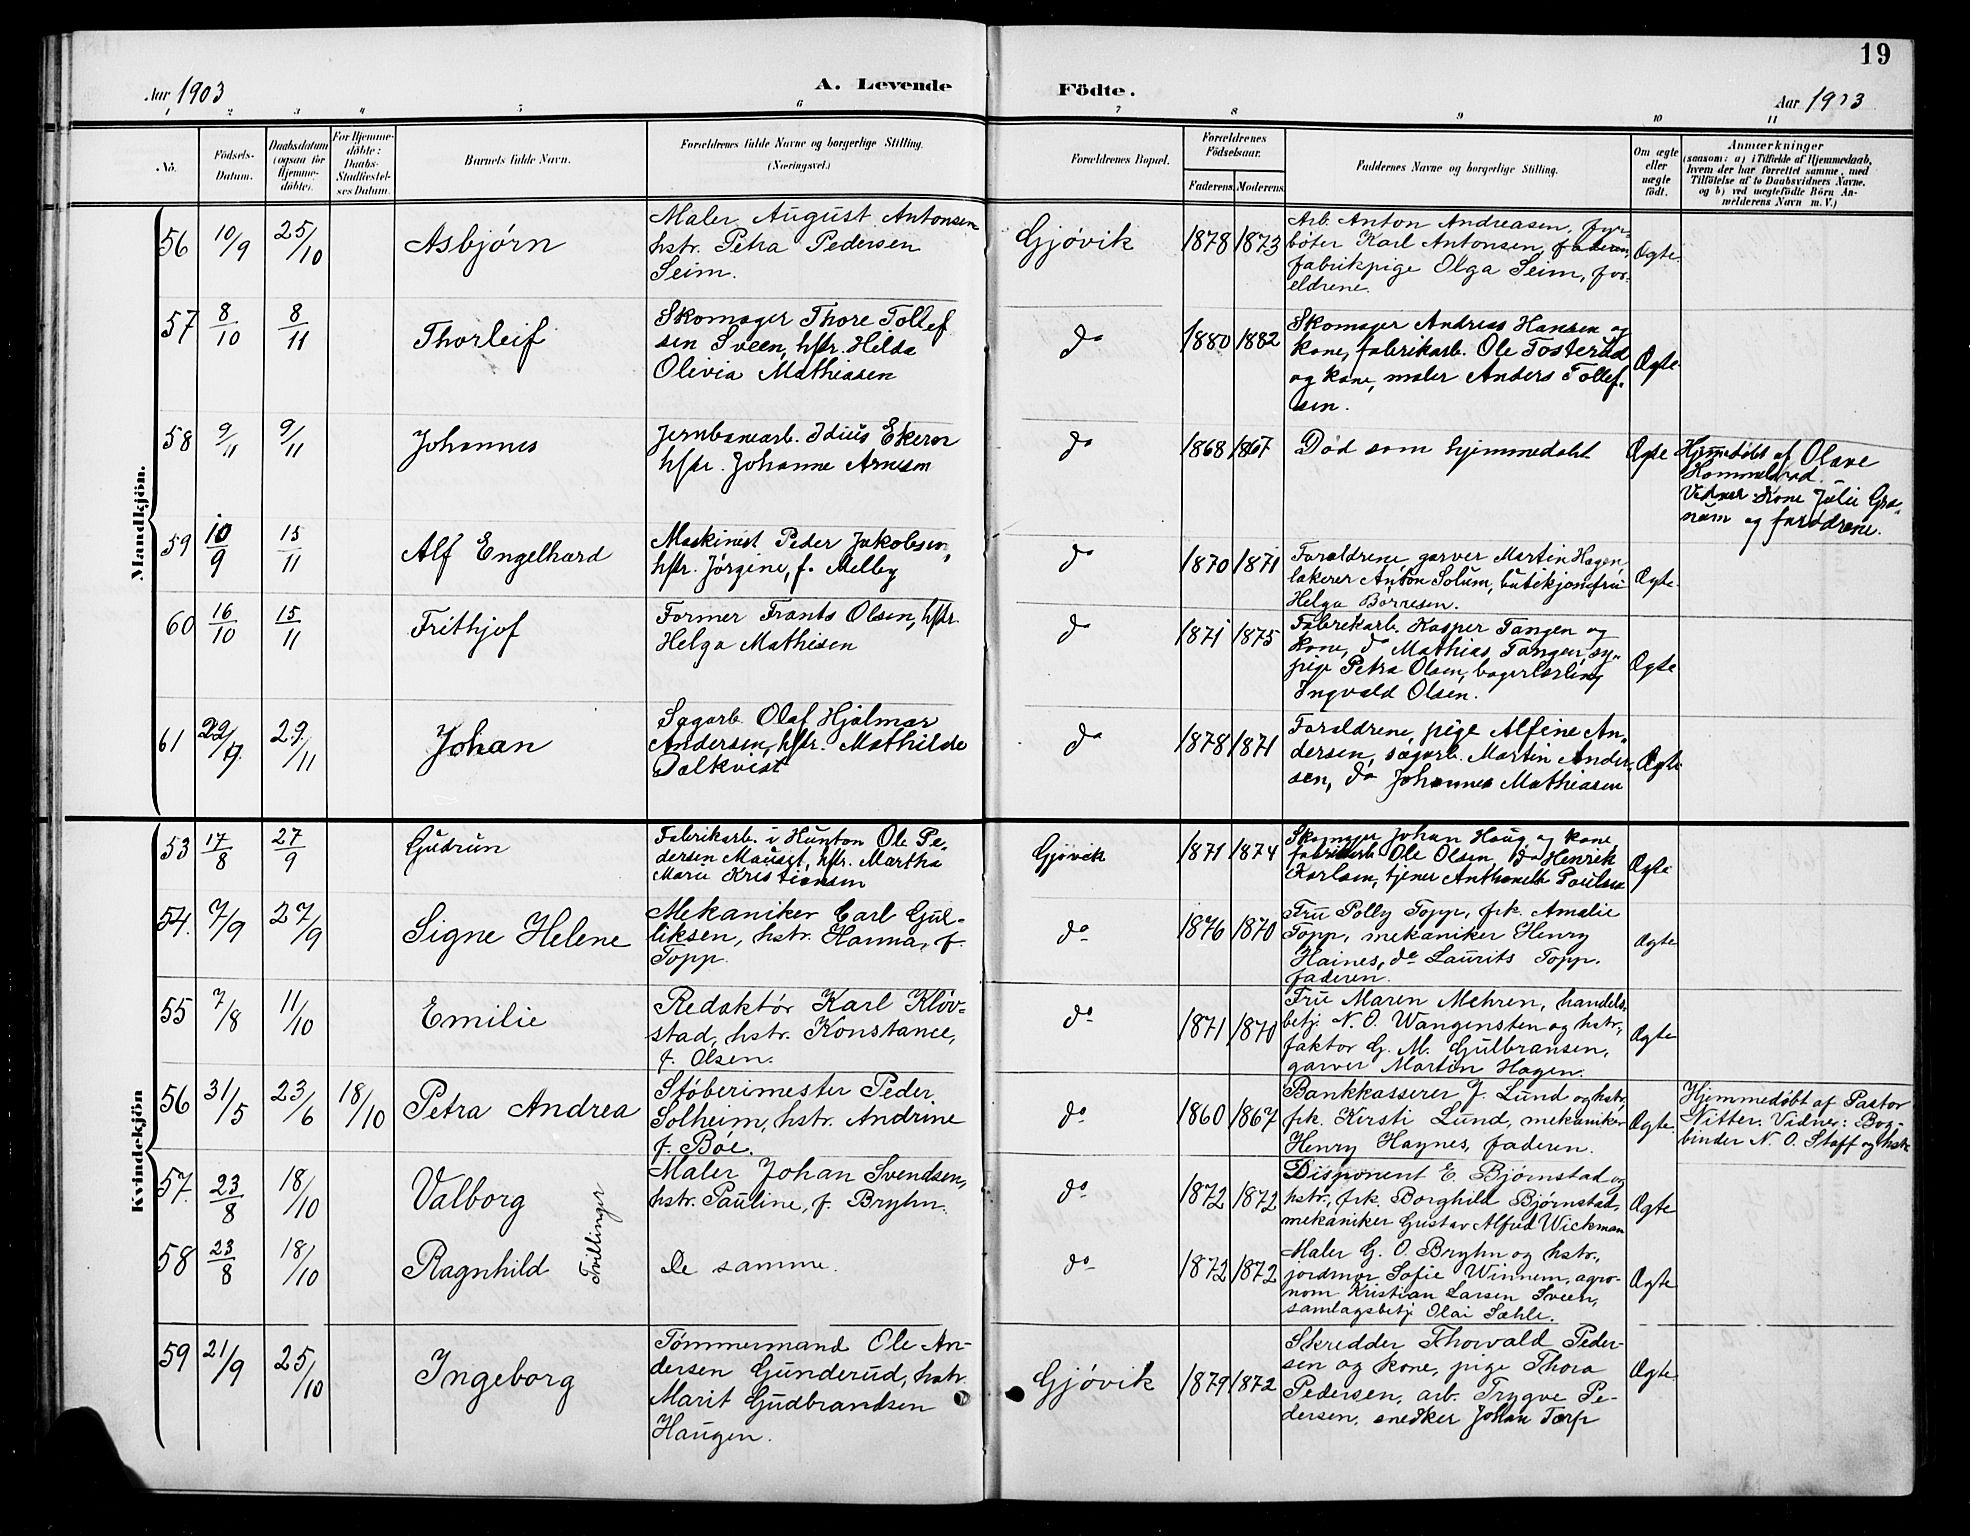 19
Aar 1903
A. Levende
Födte.
Aar 1903
1 2 3 4 5 6 7 8 9 10 11
No.
Födsels-
Datum.
Daabsdatum
(ogsaa for
Hjemme-
döbte).
For Hjemme-
döbte:
Daabs-
Stadfæstel-
ses Datum.
Barnets fulde Navn.
Forældrenes fulde Navne og borgerlige Stilling.
(Næringsvei.)
Forældrenes Bopæl.
Forældrenes
Födselsaar.
Faderens
Moderens
Faddernes Navne og borgerlige Stilling.
Om ægte
eller
uægte
født.
Anmærkninger
(saasom: a) i Tilfælde af Hjemmedaab,
hvem der har forrettet samme, med
Tilföielse af to Daabsvidners Navne,
og b) ved uægtefödte Börn An-
melderens Navn m. V.)
Mandkjön.
56
10/9
25/10
Asbjørn
Maler August Antonsen
hstr. Petra Pedersen
Seim.
Gjøvik
1878
1873
Arb. Anton Andreasen, fyr-
bøter Karl Antonsen, faderen,
fabrikpige Olga Seim, for-
eldrene.
Ægte
57
8/10
8/11
Thorleif
Skomager Thore Tollef
sen Sveen, hstr. Hilda
Olivia Mathiasen
do
1880
1882
Skomager Andreas Hansen og
kone, fabrikarb. Ole Fosterud
og kone, maler Anders Tollef-
sen.
Ægte
58
9/11
9/11
Johannes
Jernbanearb. Idius Ekeren
hstr. Johanne Arnesen
do
1868
1867
Død som hjemmedøbt
Ægte
Hjemmedøbt af Olave
Hommelstad.
Vidner Kone Julie Gra-
num og forældrene.
59
10/9
15/11
Alf Engelhard
Maskinist Peder Jakobsen,
hstr. Jørgine, f. Melby
do
1870
1871
Forældrene, garver Martin Hagen,
lakerer Anton Solum, butikjomfru
Helga Børresen.
Ægte
60
16/10
15/11
Frithjof
Former Frants Olsen, hstr.
Helga Mathisen
do
1871
1875
Fabrikarb. Kasper Tangen og
kone, do Mathias Tangen, sy-
pige Petra Olsen, bagerlærling
Ingvald Olsen.
Ægte
61
22/9
29/11
Johan
Sagarb. Olaf Hjalmar
Andersen, hstr. Mathilde
Dalkvist
do
1878
1871
Forældrene, pige Alfine An-
dersen, sagarb. Martin Ander-
sen, do Johannes Mathiasen
Ægte
Kvindekjön
53
17/8
27/9
Gudrun
Fabrikarb. i Hunton Ole Pe-
dersen Mauset, hstr. Martha
Marie Kristiansen
Gjøvik
1871
1874
Skomager Johan Haug og kone,
fabrikarb Ole Olsen, do Henrik
Karlsen, tjener Anthonette Paulsen
Ægte
54.
7/9
27/9
Signe Helene
Mekaniker Carl Gul-
liksen, hstr. Hanna, f.
Topp.
do
1876
1870
Fru Polly Topp, frk. Amalie
Topp, mekaniker Henry
Haines, do Laurits Topp.
faderen.
Ægte
55
7/8
11/10
Emilie
Redaktør Karl Kløv-
stad, hstr. Konstance,
f. Olsen.
do
1871
1870
Fru Maren Mehren, handels-
betj. N. O. Wangensten og hstr.,
faktor G. M. Gulbransen,
garver Martin Hagen.
Ægte
56
31/5
23/6
18/10
Petra Andrea
Støberimester Peder
Solheim, hstr. Andrine
f. Bøe.
do
1860
1867
Bankkasserer J. Lund og hstr,
frk. Kirsti Lund, mekaniker
Henry Haynes, faderen.
Ægte.
Hjemmedøbt af Pastor
Nitter. Vidner: Bog-
binder N. O. Staff og hstr.
57.
23/8
18/10
Valborg
Tvillinger
Maler Johan Svendsen,
hstr. Pauline, f. Bryhn.
do
1872
1872
Disponent E. Bjørnstad og
hstr., frk. Borghild Bjørnstad,
mekaniker Gustav Alfred Wickman
Ægte
58
23/8
18/10
Ragnhild
De samme.
do
1872
1872
Maler G. O. Bryhn og hstr.,
jordmor Sofie Winnem, agro-
nom Kristian Larsen Sveen,
samlagsbetj. Olai Sæhle.
Ægte
59
21/9
25/10
Ingeborg
Tømmermand Ole An-
dersen Gunderud, hstr.
Marit Gudbrandsen
Haugen.
Gjøvik
1879
1872
Skredder Thorvald Peder-
sen og kone, pige Thora
Pedersen, arb. Trygve Pe-
dersen, snedker Johan Torp
Ægte